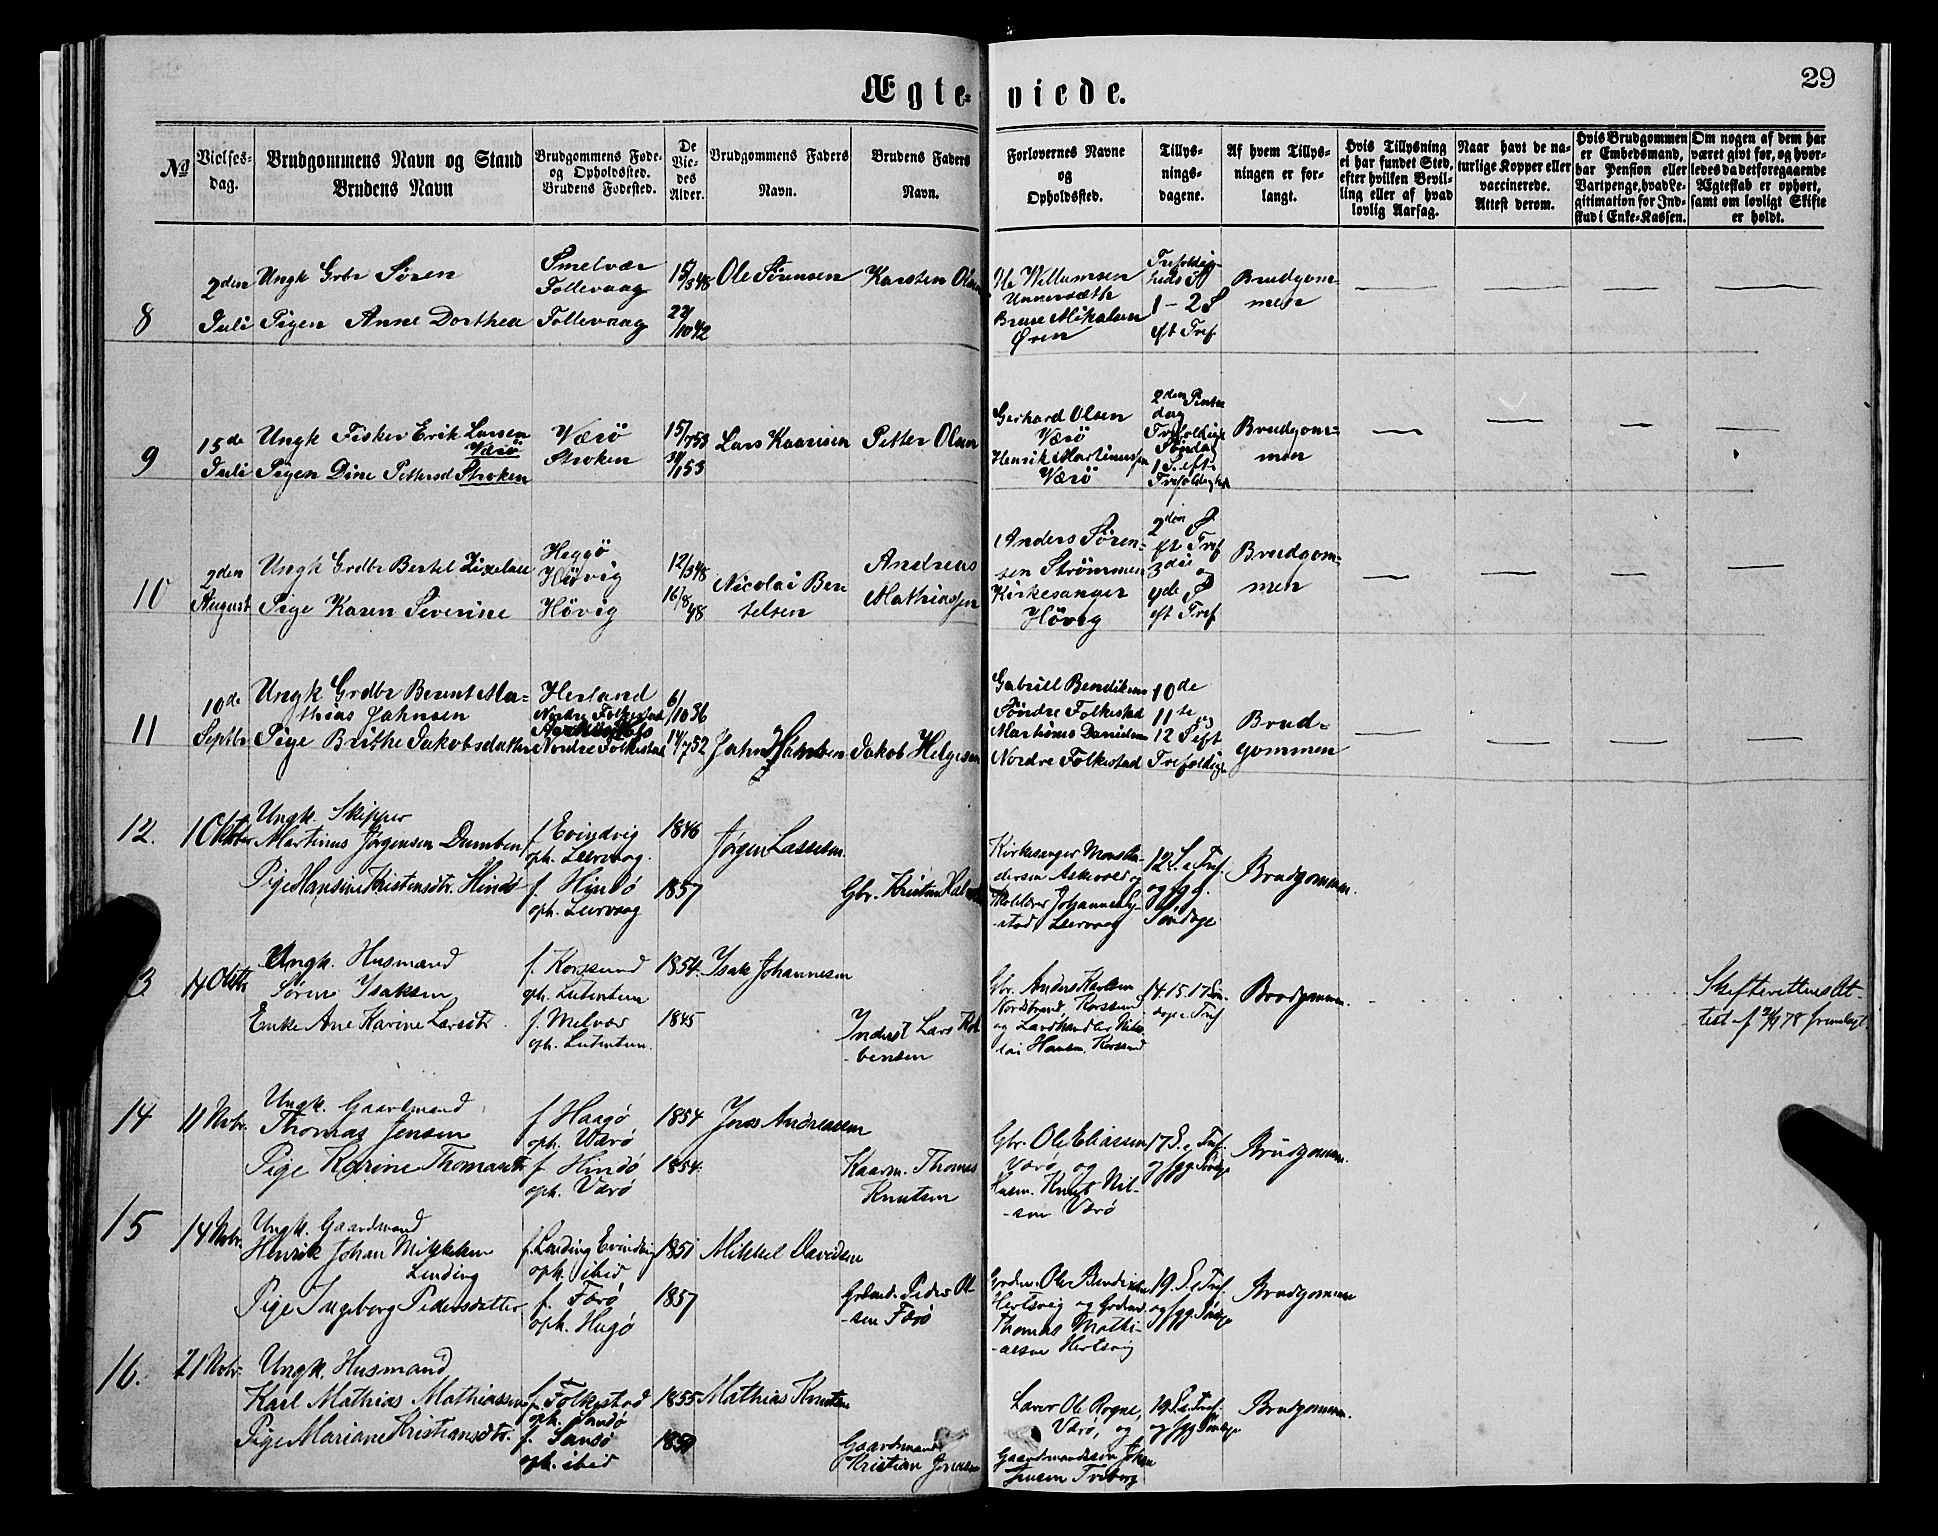 29
Ægte- viede.
No
Vielses-
dag.
Brudgommens Navn og Stand
Brudens Navn
Brudgommens Føde-
og Opholdssted.
Brudens Fødested.
De
Vie-
des
Alder.
Brudgommens Faders
Navn.
Brudens Faders
Navn.
Forlovernes Navne
og
Opholdssted.
Tillys-
nings-
dagene.
Af hvem Tillys-
ningen er for-
langt.
Hvis Tillysning
ei har fundet Sted,
efter hvilken Bevil-
ling eller af hvad
lovlig Aarsag.
Naar havt de na-
turlige Kopper eller
vaccinerede.
Attest derom.
Hvis Brudgommen
er Embedsmand,
har Pension eller
Vartpenge, hvad Le-
gitimation for Ind-
skud i Enke-Kassen.
Om nogen af dem har
været gift før, og hvor-
ledes da det foregaaende
Ægteskab er ophørt,
samt om lovligt Skifte
er holdt.
8
2den
Juli
Ungk Grbr Søren
Pigen Anne Dorthea
Smelvær
Follevaag
Follevaag
15/3 48
22/10 42
Ole Sørensen
Karsten Olsen
Ole Willumsen
Unnersæth
Mikalsen
Øren
Trefoldig-
heds S
1 - 2 S
eft Tref
Brudgom-
men
9
15de
Juli
Ungk Fisker Erik Larsen
Værö
Pigen Dine Pettersd Stroken
Værö
Stroken
15/7 53
Lars Kaarisen
Petter Olsen
Gerhard Olsen
Værö
Henrik Martinussen
Værö
2den Pintse
dag
Trefoldigh
Søndag
1 S. eft
Trefoldighed
Brudgom-
men
10
2den
August
Ungk Grdbr Bertel
Pige Karen Siverine
Heggö
Hövig
Hövig
12/3 48
16/8 48
Nicolai Ber
telsen
Andreas
Mathiassen
Anders Søren-
sen Strømmen
Kirkesanger
Hövig
2den S
eft Tref
3die og
4de S
eft Tref
Brudgom-
men
11
10de
Septbr
Ungk Grdbr Berent Ma-
thias Jahnsen
Pige Brithe Jakobsdatter
Herland
Nordre Folkestad
Nordre Folkestad
6/10 36
14/7 52
Jahn Hansen
Jakob Helgesen
Gabriel Bendiksen
Söndre Folkestad
Martinus Danielsen
Nordre Folkestad
10de
11te og
12 S eft
Trefoldigh
Brud-
gommen
12.
1 Oktbr
Ungk. Skipper
Martinus Jørgensen Dumben
Pige Hansine Kristensdtr. Hindø
f. Evindvig
oph. Leervaag.
f. Hindø
oph. Leervaag
1846
1857
Jørgen Lassesen.
Gbr. Kristen
Kirkesanger Mons An-
dersen Askevold og
Johannes
Leervaag
12 S. e. Tref.
og fgg.
Søndage
Brudgommen.
3.
14 Oktb
Ungk. Husmand
Søren Isaksen
Enke Ane Karine Larsdtr.
f. Korssund
oph. Lutentun
f. Melvær
oph. Lutentun.
1854.
1845
Isak Johannesen
Inderst Lars Kol-
bensen
Gbr. Anders Karlsen
Nordstrand, Korssund
og Landhandler Niko-
lai Hansen, Korssund
14. 15. 17 Søn-
dag e. Tref
Brudgommen.
Skifterettens At-
test af 78 fremlagt.
14
11 Novbr.
Ungk. Gaardmand
Thomas Jensen
Pige Karine Thomasdtr.
f Haagø
oph. Værø
f Hindø
oph. Værø
1854
1854.
Jens Andreassen
Kaarm. Thomas
Knutsen
Gbr. Ole Eliassen
Værø og
Husm. Knut Nil-
sen Værø
17 S. e. Tref.
og fgg. Søndage
Brudgommen.
15
14 Novbr.
Ungk. Gaardmand
Henrik Johan Mikkelsen
Linding
Pige Ingeborg Pedersdatter
f. Linding Evindvig
oph. ibid
f. Færø
oph. Hugø
1851
1857
Mikkel Davidsen
Grdmd. Peder Ol-
sen Færø
Grdm. Ole Bendixen
Hertsvig og Grdmd.
Thomas Mathi-
assen Hertsvig
19. S. e. Tref.
og fgg. Søndage
Brudgommen
16.
21 Novbr.
Ungk. Husmand
Karl Mathias Mathiassen
Pige Mariane Kristiansdtr.
f. Folkestad
oph. Sandø
f. Sandø
oph. ibid
1855
Mathias Knutsen
Gaardmand
Kristian Jonassen
Lærer Ole Rogne,
Værø, og
Gaardmandssøn Johan
Jensen
19 S. e. Tref.
og fgg Søndage
Brudgommen.